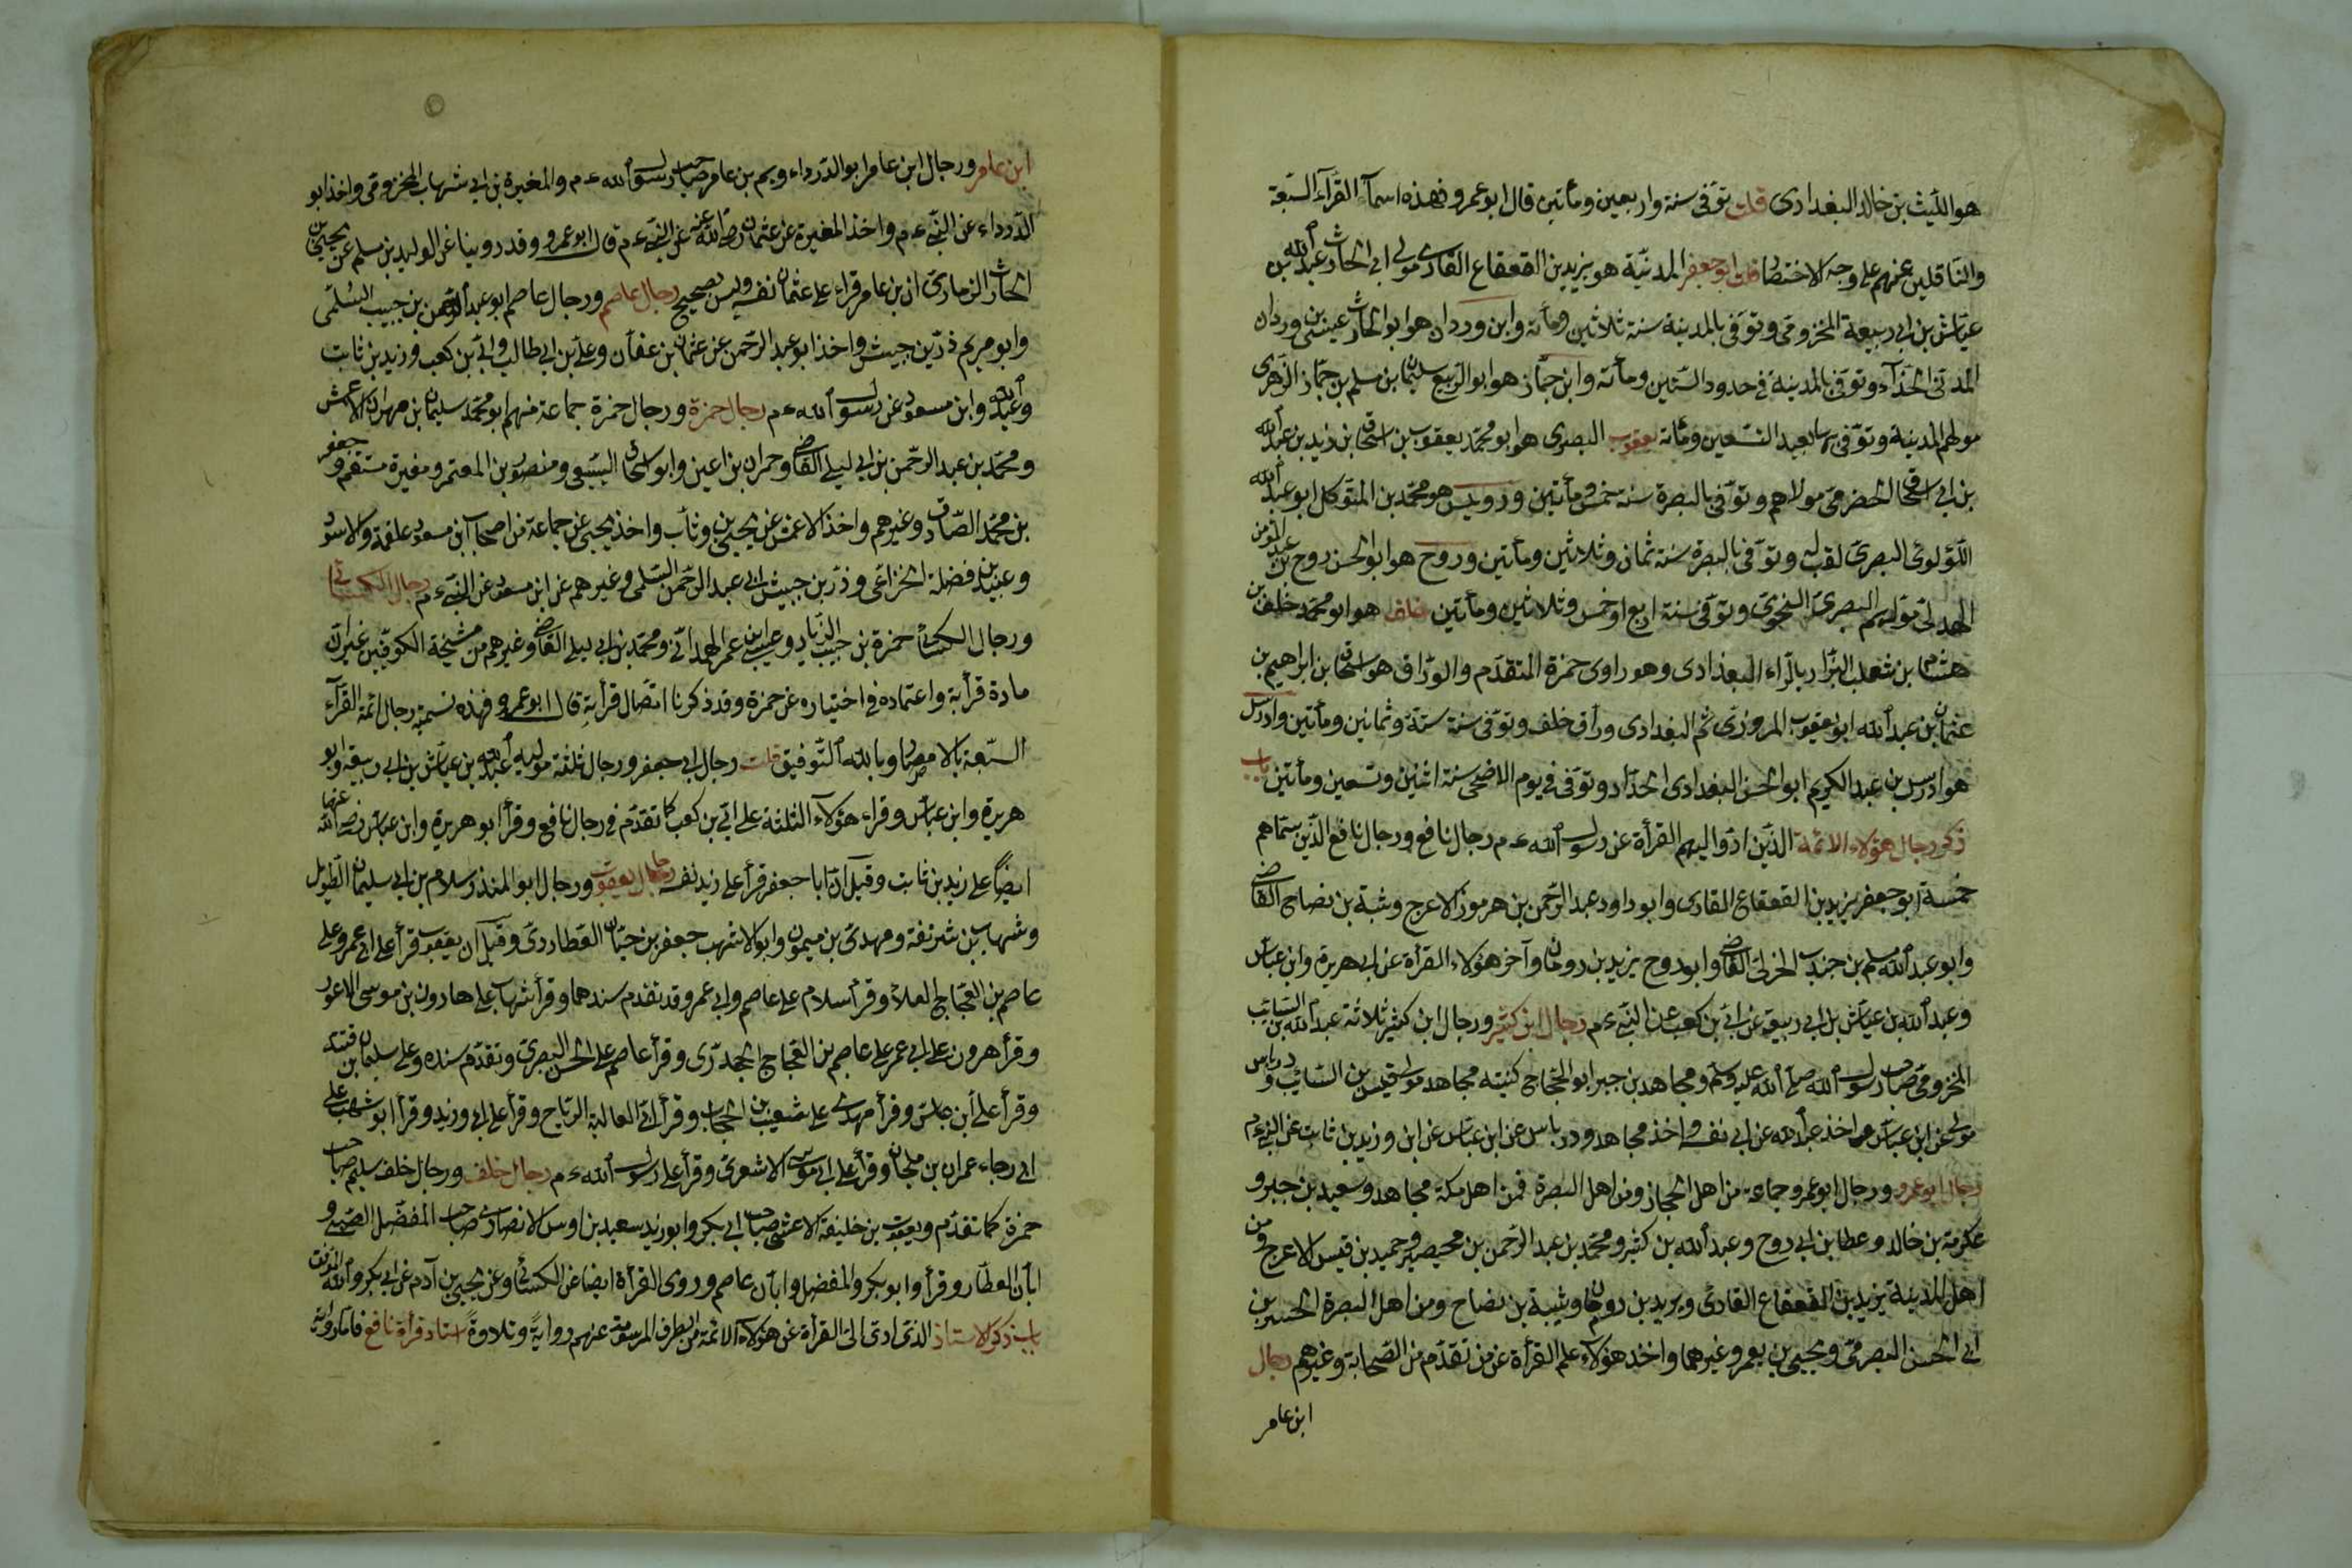 هو الليث بن خالد البغدادى قلت توفى سنة واربعين ومأتين قال ابو عمرو فهذه اسمآء القرآء السبعة
والناقلين عنهم على وجه الاختصار قلت ابو جعفر المدنية هو يزيد بن القعقاع القارى مولى ابى الحارث عبد الله بن
عياش بن ابى ربيعة المخزومى وتوفى بالمدينة سنة ثلاثين ومأته وابن وردان هو ابو الحارث عيسى بن وردان
المدنى الحذآء وتوفى بالمدينة فى حدود الستين ومأته وابن جماز هو ابو الربيع سليمان بن مسلم بن جماز الزهرى
مولهم المدنية وتوفى بها بعيد السبعين ومأته يعقوب البصرى هو ابو محمد يعقوب بن اسحاق بن زيد بن عبد الله
بن ابى اسحاق الحضرمى مولاهم وتوفى بالبصرة سنة خمس ومأتين ورويس هو محمد بن المتوكل ابو عبد الله
اللؤلوئى البصرى لقب له وتوفى بالبصرة سنة ثمان وثلاثين ومأتين وروح هو ابو الحسن روح بن عبد المؤمن
الهدلى موليهم البصرى النحوى وتوفى سنة اربع او خمس وثلاثين ومأتين خلف هو ابو محمد خلف بن
هشام بن ثعلب البزار بالرآء البغدادى وهو راوى حمزة المتقدم والوراق هو اسحاق بن ابراهيم بن
عثمان بن عبد الله ابو يعقوب المروزى ثم البغدادى وراق خلف وتوفى سنة ستة وثمانين ومأتين وادريس
هو ادريس بن عبد الكريم ابو الحسن البغدادى الحداد وتوفى فى يوم الاضحى سنة اثنين وتسعين ومأتين باب
ذكر رجال هؤلاء الائمة الذين ادوا اليهم القرأة عن رسول الله ءم رجال نافع ورجال نافع الذين سماهم
خمسة ابو جعفر يزيد بن القعقاع القارى وابو داود عبد الرحمن بن هرموز الاعرج وشبة بن نصاح القاضى
وابو عبد الله مسلم بن جندب الهزلى القاضى وابو روح يزيد بن رومان وآخر هؤلاء القرأة عن ابى هريرة وابن عباس
وعبد الله بن عياش بن ابى ربيعة عن ابى بن كعب عن النبى ءم رجال ابن كثير ورجال ابن كثير ثلاثة عبد الله بن السائب
المخزومى صاحب رسول الله صلى الله عليه وسلم ومجاهد بن جبر ابو الحجاج كنيته مجاهد مولى قيس بن السائب ودرباس
مولى عن ابن عباس واخذ عبد الله عن ابى نفسه واخذ مجاهد ودرباس عن ابن عباس عن ابى وزيد بن ثابت عن النبى ءم
رجال ابو عمرو ورجال ابو عمرو جماعة من اهل الحجاز ومن اهل البصرة فمن اهل مكة مجاهد وسعيد بن جبر و
عكرمة بن خالد وعطا بن ابى روح وعبد الله بن كثير ومحمد بن عبد الرحمن بن محيصن وحميد بن قيس الاعرج ومن
اهل المدينة يزيد بن القعقاع القارى ويزيد بن رومان وشيبة بن نصاح ومن اهل البصرة الحسن بن
ابى الحسن البصرى ويحيى بن يعمر وغيرهما واخذ هؤلاء علم القرأة عن من تقدم من الصحابة وغيرهم رجال
ابن عامر
ابن عامر ورجال ابن عامر ابو الدرداء ويم بن عامر صاحب رسول الله ءم والمغيرة بن ابى شهاب المخزومى واخذ ابو
الدرداء عن النبى ءم واخذ المغيرة عن عثمان رضى الله عنه عن النبى ءم قال ابو عمرو وقد روينا عن الوليد بن مسلم عن يحيى بن
الحارث الزمارى ان بن عامر قراء على عثمان نفسه وليس بصحيح رجال عاصم ورجال عاصم ابو عبد الرحمن بن حبيب السلمى
وابو مريم ذر بن حبيش واخذ ابو عبد الرحمن عن عثمان بن عفان وعلى بن ابى طالب وابى بن كعب وزيد بن ثابت
وعبد الله وابن مسعود عن رسول الله ءم رجال حمزة ورجال حمزة جماعة منهم ابو محمد سليمان بن مهران الاعمش
ومحمد بن عبد الرحمن بن ابى ليلى القاضى وحمران بن اعين وابو اسحاق السبيعى ومنصور بن المعتمر ومغيرة مستقم وجعفر
بن محمد الصادق وغيرهم واخذ الاعمش عن يحيى بن وثاب واخذ يحيى عن جماعة من اصحاب ابن مسعود علقمة والاسود
وعبيد بن فضلة الخزاعى وذر بن حبيش ابى عبد الرحمن السلمى وغيرهم عن ابن مسعود عن النبى ءم رجال الكسائى
ورجال الكسائى حمزة بن حبيب الزيات وعيسى بن عمر الهمدانى ومحمد بن ابى ليلى القاضى وغيرهم من مشيخة الكوفيين غير ان
مادة قرأته واعتماده فى اختياره عن حمزة وقد ذكرنا اتصال قرأته قال ابو عمرو فهذه تسمية رجال ائمة القرآء
السبعة بالامصار وبالله التوفيق قلت رجال ابى جعفر ورجال ثلثة موليه عبد الله بن عياش بن ابى ربيعة وابو
هريرة وابن عباس وقراء هؤلآء الثلثة على ابى بن كعب كما تقدم فى رجال نافع وقرأ ابو هريرة وابن عباس رضى الله عنهما
ايضا على زيد بن ثابت وقيل ان ابا جعفر قرأ على زيد نفسه رجال يعقوب ورجال ابو المنذر سلام بن ابى سليمان الطويل
وشهاب بن شرنفة ومهدى بن ميمون وابو الاشهب جعفر بن حيان العطاردى وقيل ان يعقوب قرأ على ابى عمرو على
عاصم بن العجاج العلا وقرأ سلام على عاصم وابى عمرو قد تقدم سندهما وقرأ شهاب على هارون بن موسى الاعور
وقرأ هرون على ابى عمر على عاصم بن العجاج الجحدرى وقرأ عاصم على الحسن البصرى وتقدم سنده وعلى سليمان بن قتيبة
وقرأ على ابن عباس وقرأ مهدى على شعيب بن الحجاب وقرأ الى العالية الرياح وقرأ على ابى وزيد وقرأ ابو شهب على
ابى رجاء عمران بن ملحان وقرأ على ابى موسى الاشعرى وقرأ على رسول الله ءم رجال خلف ورجال خلف سليم صاحب
حمزة كما تقدم ويعقوب بن خليفة الاعشى صاحب ابى بكر وابو زيد سعيد بن اوس الانصارى صاحب المفضل الضبى و
ابان العطار وقرأ وابو بكر والمفضل وابان عاصم وروى القرأة ايضا عن الكسائى وعن يحيى بن آدم عن ابى بكر والله الموفق
باب ذكر الاستاذ الذى ادى الى القرأة عن هؤلآء الائمة من الطرف المرسومة عنهم رواية وتلاوة اسناد قرأة نافع فاما رواية